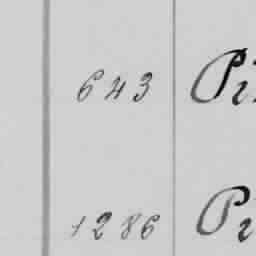 643 Pr
1286 Pr